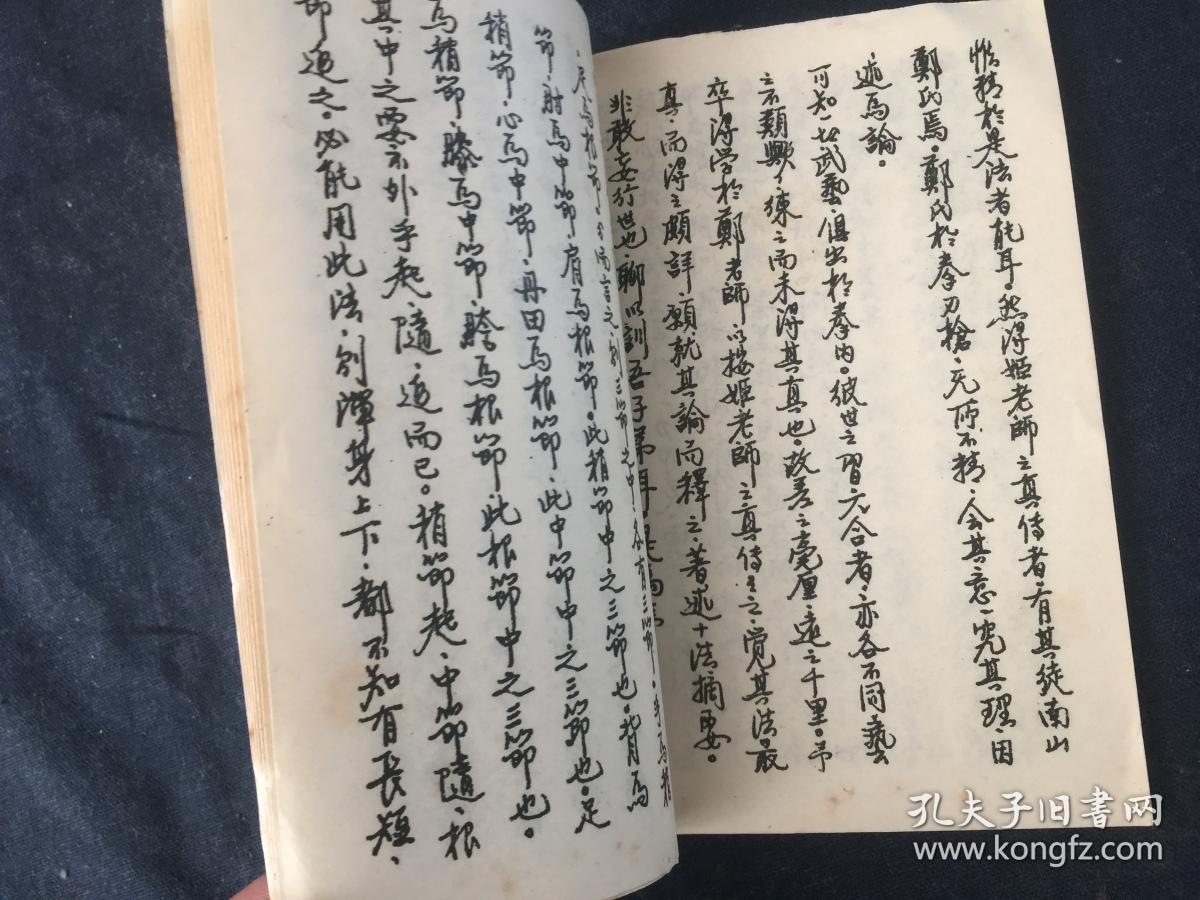 惟精於是法者能耳。然得姬老師之真傳者、有其徒南山
鄭氏焉。鄭氏於拳刀槍、无所不精、会其意、究其理、因
述為論。
可知一切武藝、俱出於拳内。彼世之習六合者、亦各不同、藝
之不類歟、練之而未得其真也。故差之毫厘、遠之千里。予
卒得学於鄭老師、以接姬老師之真傳、
真、而得之頗詳、願就其論而釋之、著述十法摘要。
非敢妄行世也、聊以訓吾子弟耳
節、肘為中節、肩為根節。此稍節中之三節也。背為
稍節、心為中節、丹田為根節、此中節中之三節也。足
為稍節、膝為中節、胯為根節、此根節中之三節也。
其中之要、不外乎起、隨、追而已。稍節起、中節隨、根
節追之。必能用此法、則渾身上下、都不知有長短、
孔夫子旧書网
www.kongfz.com